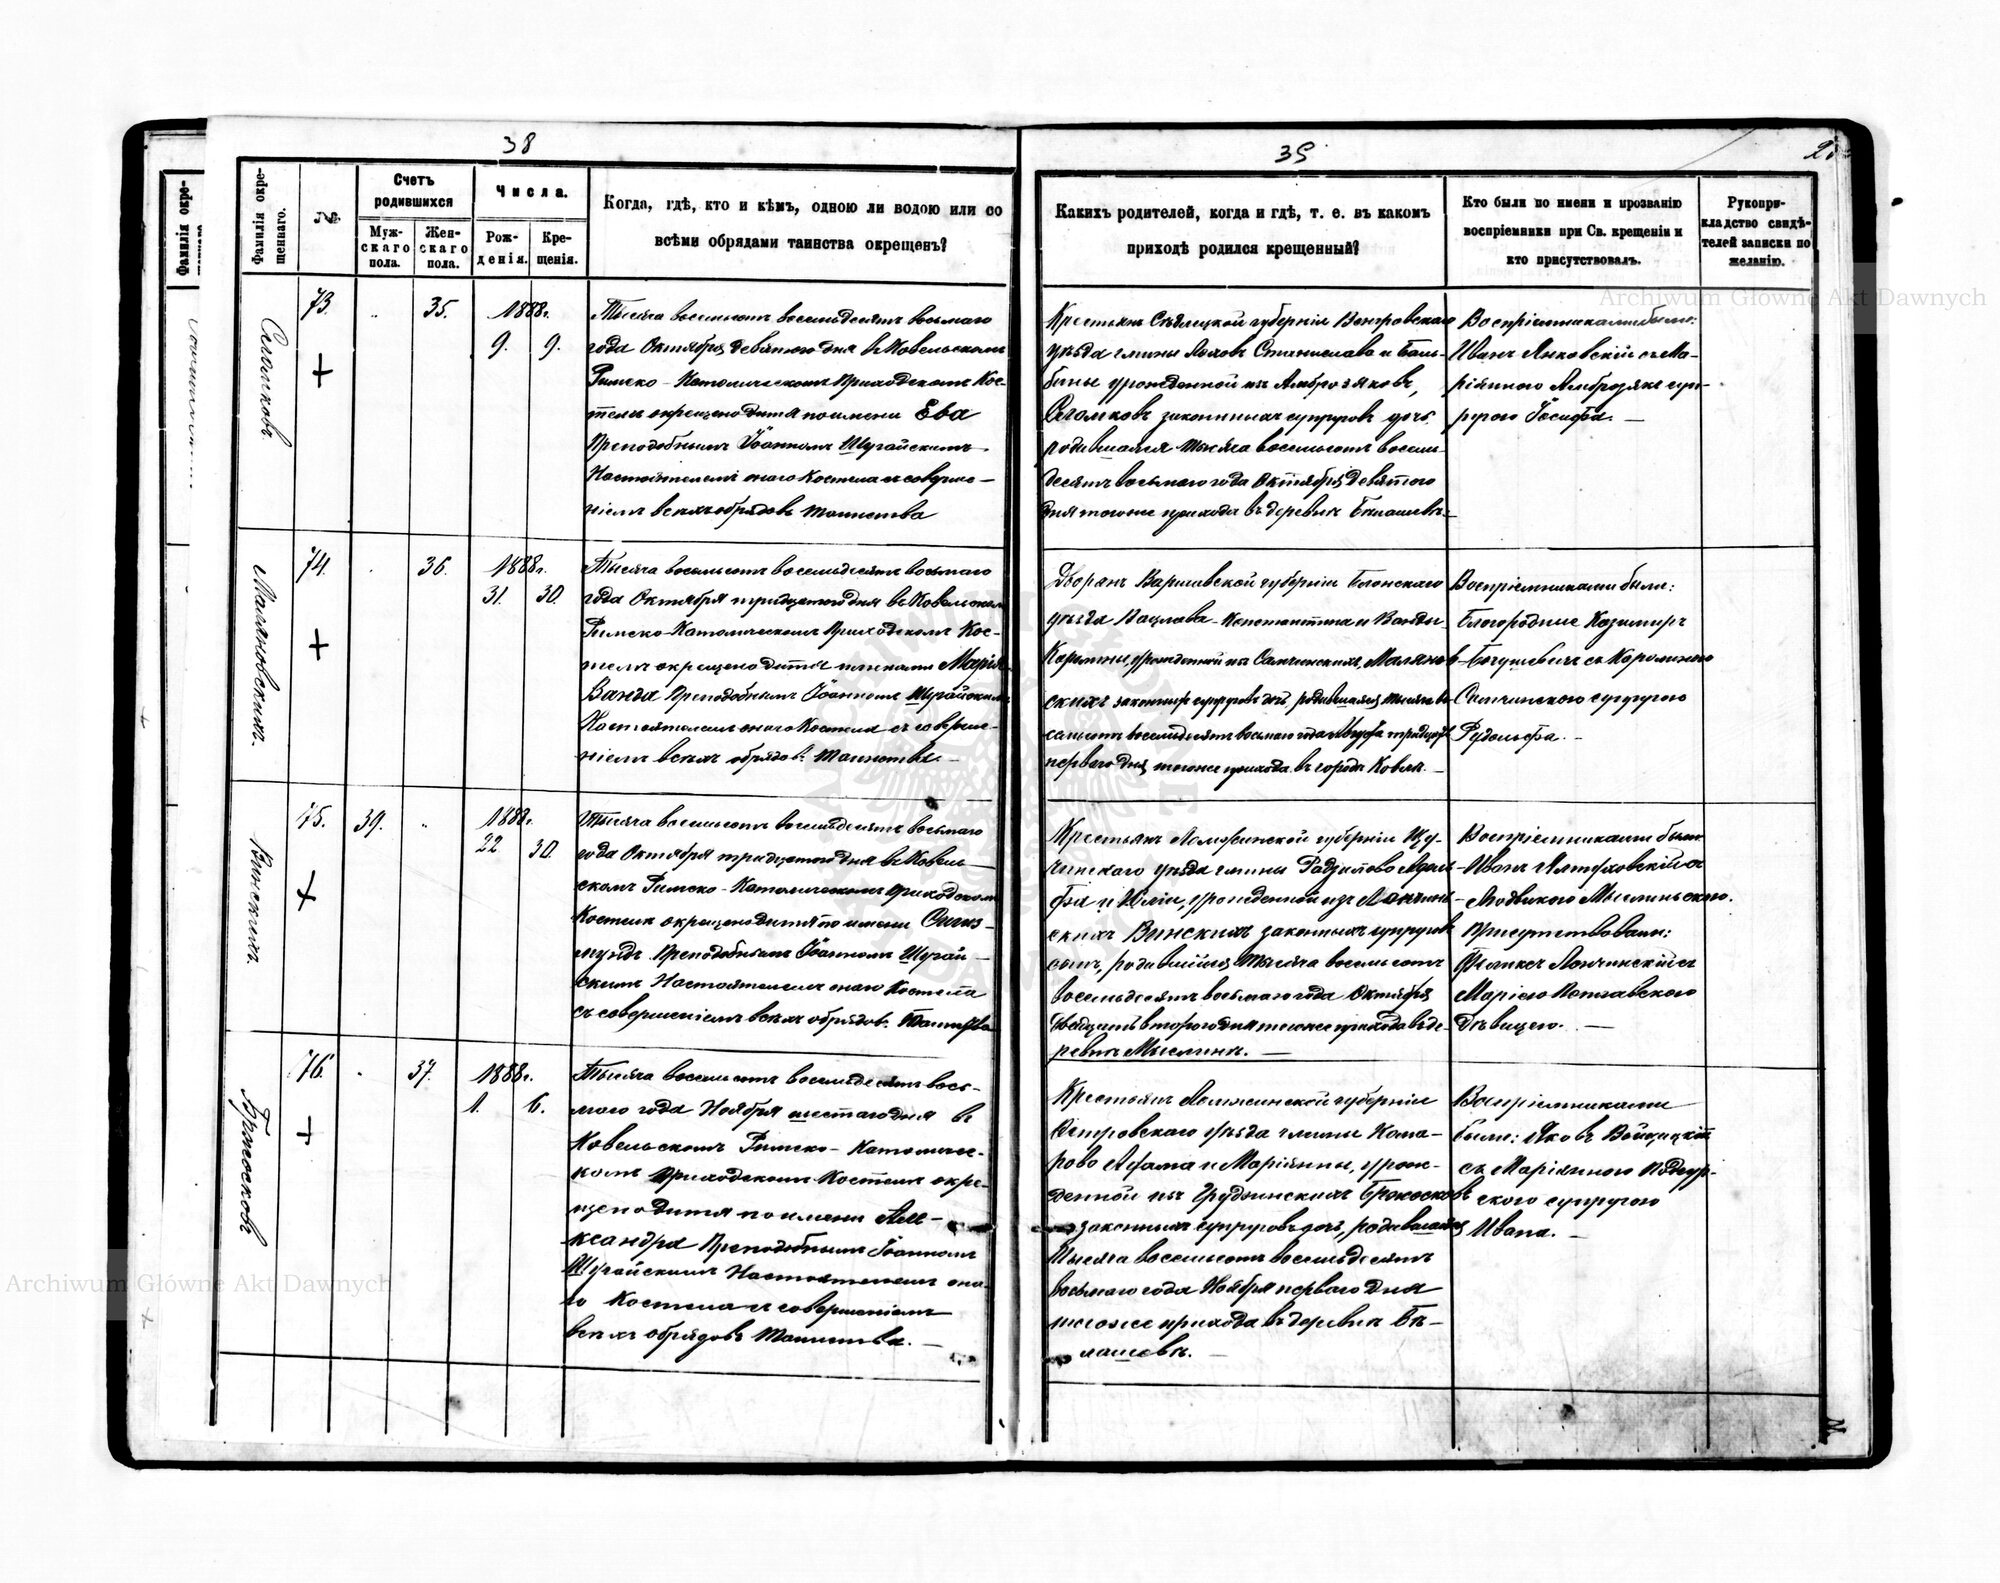 38
Фамилія окре-
Фамилія окре-
щеннаго.
№
Счетъ
родившихся
Муж-
скаго
пола.
Жен-
скаго
пола.
Числа.
Рож-
денія.
Кре-
щенія.
Когда, гдѣ, кто и кѣмъ, одною ли водою или со
всѣми обрядами таинства окрещенъ?
73.
35.
1888г.
9. 9.
Тысяча восемьсотъ восемьдесятъ восьмаго
года Октября девятого дня въ Ковельскомъ
Римско-Католическомъ Приходскомъ Кос-
телѣ окрещено дитя по имени Ева
Преподобнымъ Іоанномъ Шугайскимъ
Настоятелемъ онаго Костела съ соверше-
ніемъ всѣхъ обрядовъ Таинства
Маляновскихъ.
74.
36.
1888г.
31. 30.
Тысяча восемьсотъ восемьдесятъ восьмаго
года Октября тридцатого дня въ Ковельском
Римско-Католическомъ Приходскомъ Кос-
телѣ окрещено дитя именами Марія
Ванда Преподобнымъ Іоанномъ Шугайскимъ
Настоятелемъ онаго Костела съ соверше-
ніемъ всѣхъ обрядовъ Таинства.
Винскихъ.
75.
39.
1888г.
22 30.
Тысяча восемьсотъ восемьдесятъ восьмаго
года Октября тридцатого дня въ Ковель-
скомъ Римско-Католическомъ Приходском
Костелѣ окрещено дитя по имени Сигиз-
мундъ Преподобнымъ Іоанномъ Шугай-
скимъ Настоятелемъ онаго Костела
съ совершеніемъ всѣхъ обрядов. Таинства
76.
37.
1888г.
1. 6.
Тысяча восемьсотъ восемьдесятъ вось-
маго года Ноября шестаго дня въ
Ковельскомъ Римско-Католичес-
комъ Приходскомъ Костелѣ окре-
щено дитя по имени Але-
ксандра Преподобнымъ Іоанномъ
Шугайскимъ Настоятелемъ она-
го Костела съ совершеніемъ
всѣхъ обрядовъ Таинства.
39
Какихъ родителей, когда и гдѣ, т. е. въ какомъ
приходѣ родился крещенный?
Кто были по имени и прозванію
воспріемники при Св. крещеніи и
кто присутствовалъ.
Рукопри-
кладство свидѣ-
телей записки по
желанію.
Крестьянъ Сѣдлецкой губерніи Венгровскаго
уѣзда гмины Ляховъ Станислава и Баль-
бины урожденной изъ Амброзяковъ,
законныхъ супруговъ дочь,
родившаяся тысяча восемьсотъ восемь-
десятъ восьмаго года Октября девятого
дня тогоже прихода въ деревнѣ Бѣлашевкѣ
Воспріемниками были:
Иванъ Янковскій съ Ма-
ріянною Амброзякъ суп-
ругою Іосифа.
Дворянъ Варшавской губерніи Блонскаго
уѣзда Вацлава-Константина и Ванды
законныхъ супруговъ дочь, родившаяся тысяча во-
семьсотъ восемьдесятъ восьмаго года Августа тридцать
перваго дня тогоже прихода въ городѣ Ковлѣ.
Воспріемниками были:
Благородные Казимиръ
Богушевичъ съ Каролиною
супругою
Рудольфа.
Крестьянъ Ломжинской губерніи Щу-
чинскаго уѣзда гмины Радзилово Адоль-
фа и Юліи, урожденной изъ Лончин-
скихъ Винскихъ законныхъ супруговъ
сынъ, родившійся тысяча восемьсотъ
восемьдесятъ восьмаго года Октября
двадцать второго дня тогоже прихода въ де-
ревнѣ Мыслинѣ.
Воспріемниками были
Иванъ съ
Людвикою
Присутствовали:
Феликсъ Лончинскій съ
Маріею
дѣвицею.
Крестьянъ Ломжинской губерніи
Островскаго уѣзда гмины Кома-
рово Адама и Маріянны, урож-
денной изъ Грудзинскихъ
законныхъ супруговъ дочь, родившаяся
тысяча восемьсотъ восемьдесятъ
восьмаго года Ноября перваго дня
тогоже прихода въ деревнѣ Бѣ-
лашевкѣ.
Воспріемниками
были: Яковъ Войцицкій
съ Маріянною
супругою
Ивана.
Archiwum Główne Akt Dawnych
Archiwum Główne Akt Dawnych